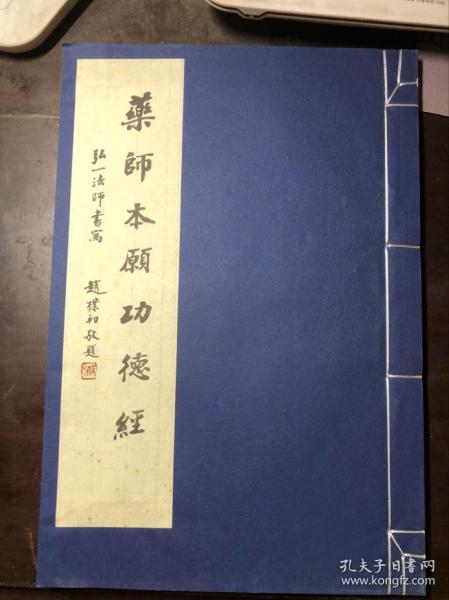 藥師本願功德經
弘一法師書寫
趙樸初敬題
孔夫子旧书网
www.kongfz.com